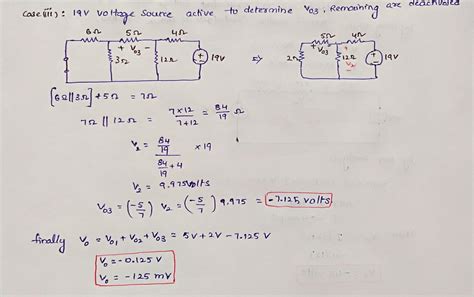 Case(iii): 19V voltage source active to determine V03, Remaining are deactivated
6Ω 5Ω 4Ω 5Ω 4Ω
+ V03 - + V03 -
3Ω 12Ω 19V ⇒ 2Ω 12Ω V2 19V
[6Ω||3Ω]+5Ω = 7Ω
7Ω || 12Ω = 7×12/7+12 = 84/19 Ω
V2 = (84/19)/(84/19 + 4) × 19
V2 = 9.975 volts
V03 = (-5/7) V2 = (-5/7) 9.975 = -7.125 volts
finally V0 = V01 + V02 + V03 = 5V + 2V - 7.125 V
V0 = -0.125 V
V0 = -125 mV